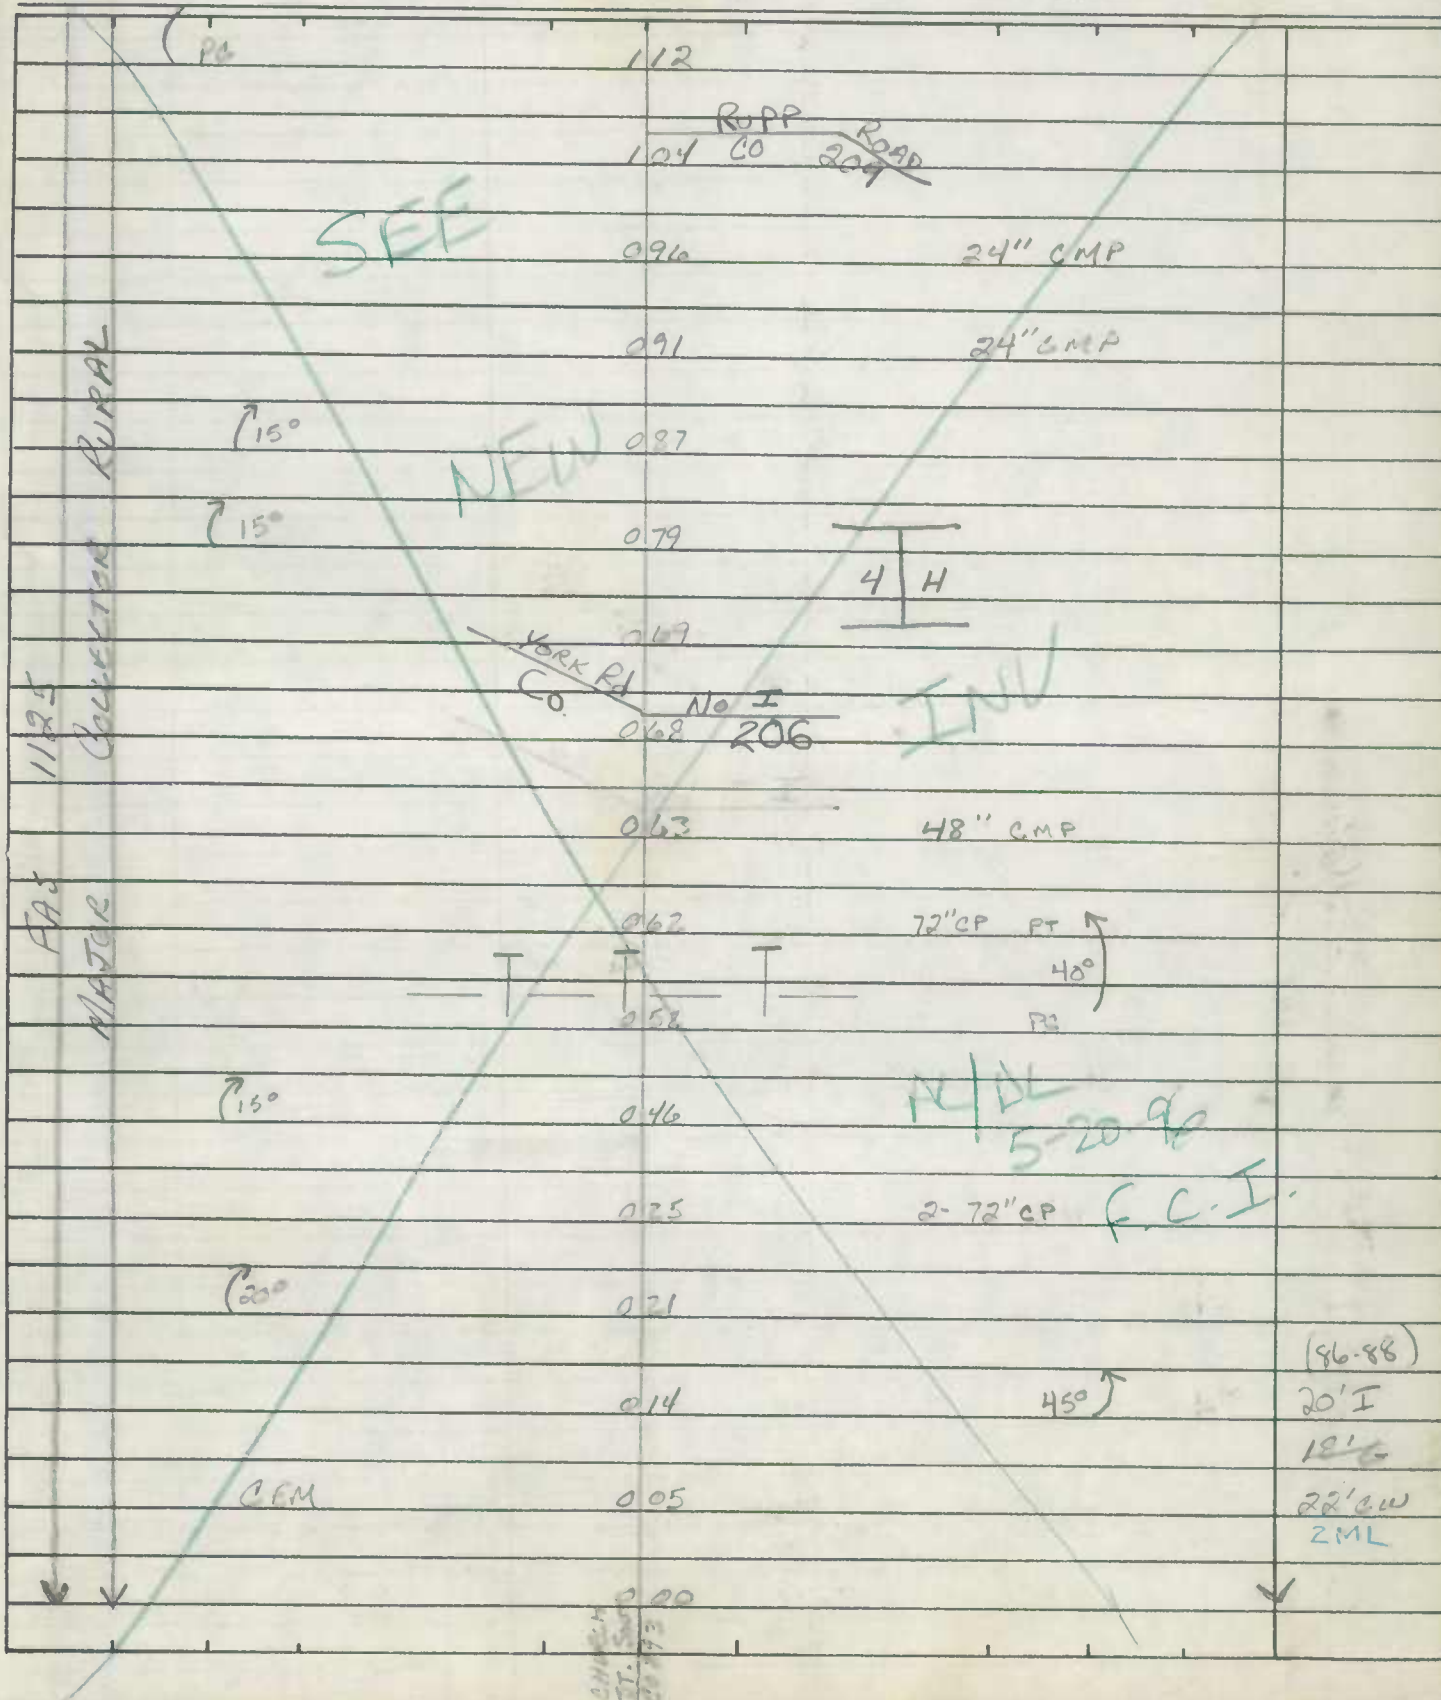 PC
1 12
RUPP ROAD
1 04 CO 209
SEE
0 96 24" CMP
0 91 24" CMP
15° 0 87
NEW
15° 0 79
4 H
0 69
YORK Rd
CO. No I
0 68 206
INV
0 63 48" CMP
0 62 72" CP PT
40°
0 58 PC
15° 0 46
5-20-96
0 25 2- 72" CP F.C.I.
20° 0 21
(86-88)
0 14 45° 20' I
CEM 0 05 22' GW
2ML
0 00
FAS 1125
MAJOR COLLECTOR RURAL